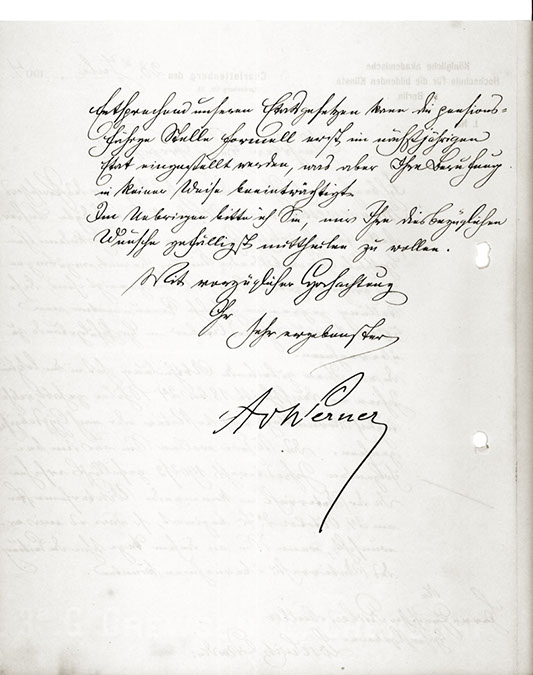 Entsprechend unseren Etatgesetzen kann die pensions-
fähige Stelle formell erst im nächstjährigen
Etat eingestellt werden, was aber Ihre Berufung
in keiner Weise beeinträchtigt.
Im Uebrigen bitte ich Sie, mir Ihre diesbezüglichen
Wünsche gefälligst mittheilen zu wollen.
Mit vorzüglicher Hochachtung
Ihr
sehr ergebenster
AvWerner